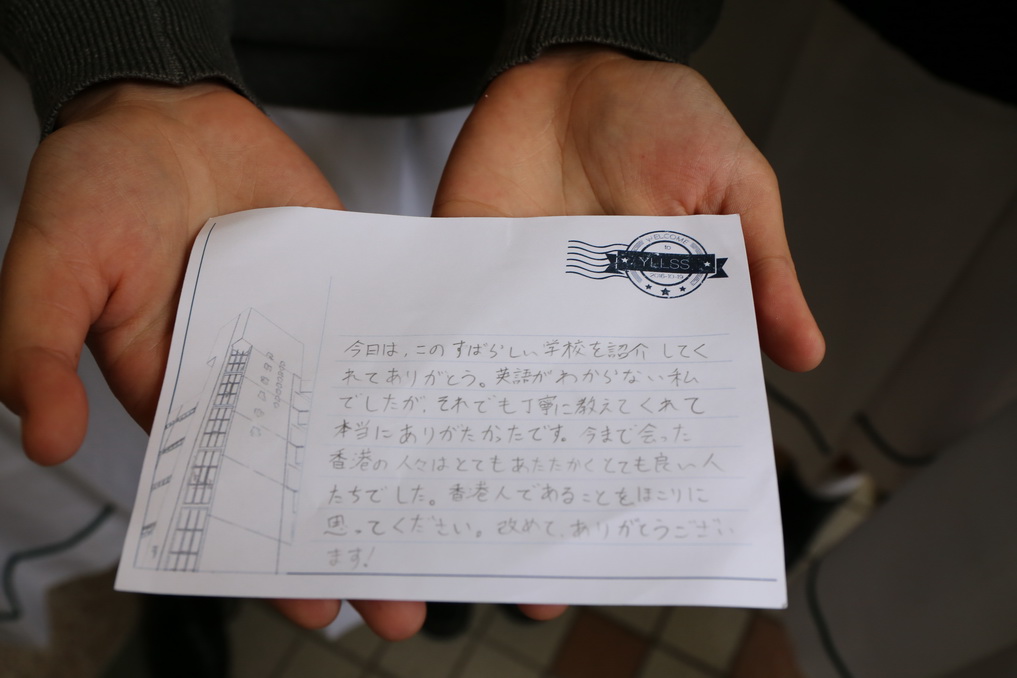 WELCOME
to
YLLSS
今日は、このすばらしい学校を認介してく
れてありがとう。英語がわからない私
でしたが、それでも丁寧に教えてくれて
本当にありがたかったです。今まで会った
香港の人々はとてもあたたかくとても良い人
たちでした。香港人であることをほこりに
思ってください。改めて、ありがとうござい
ます!